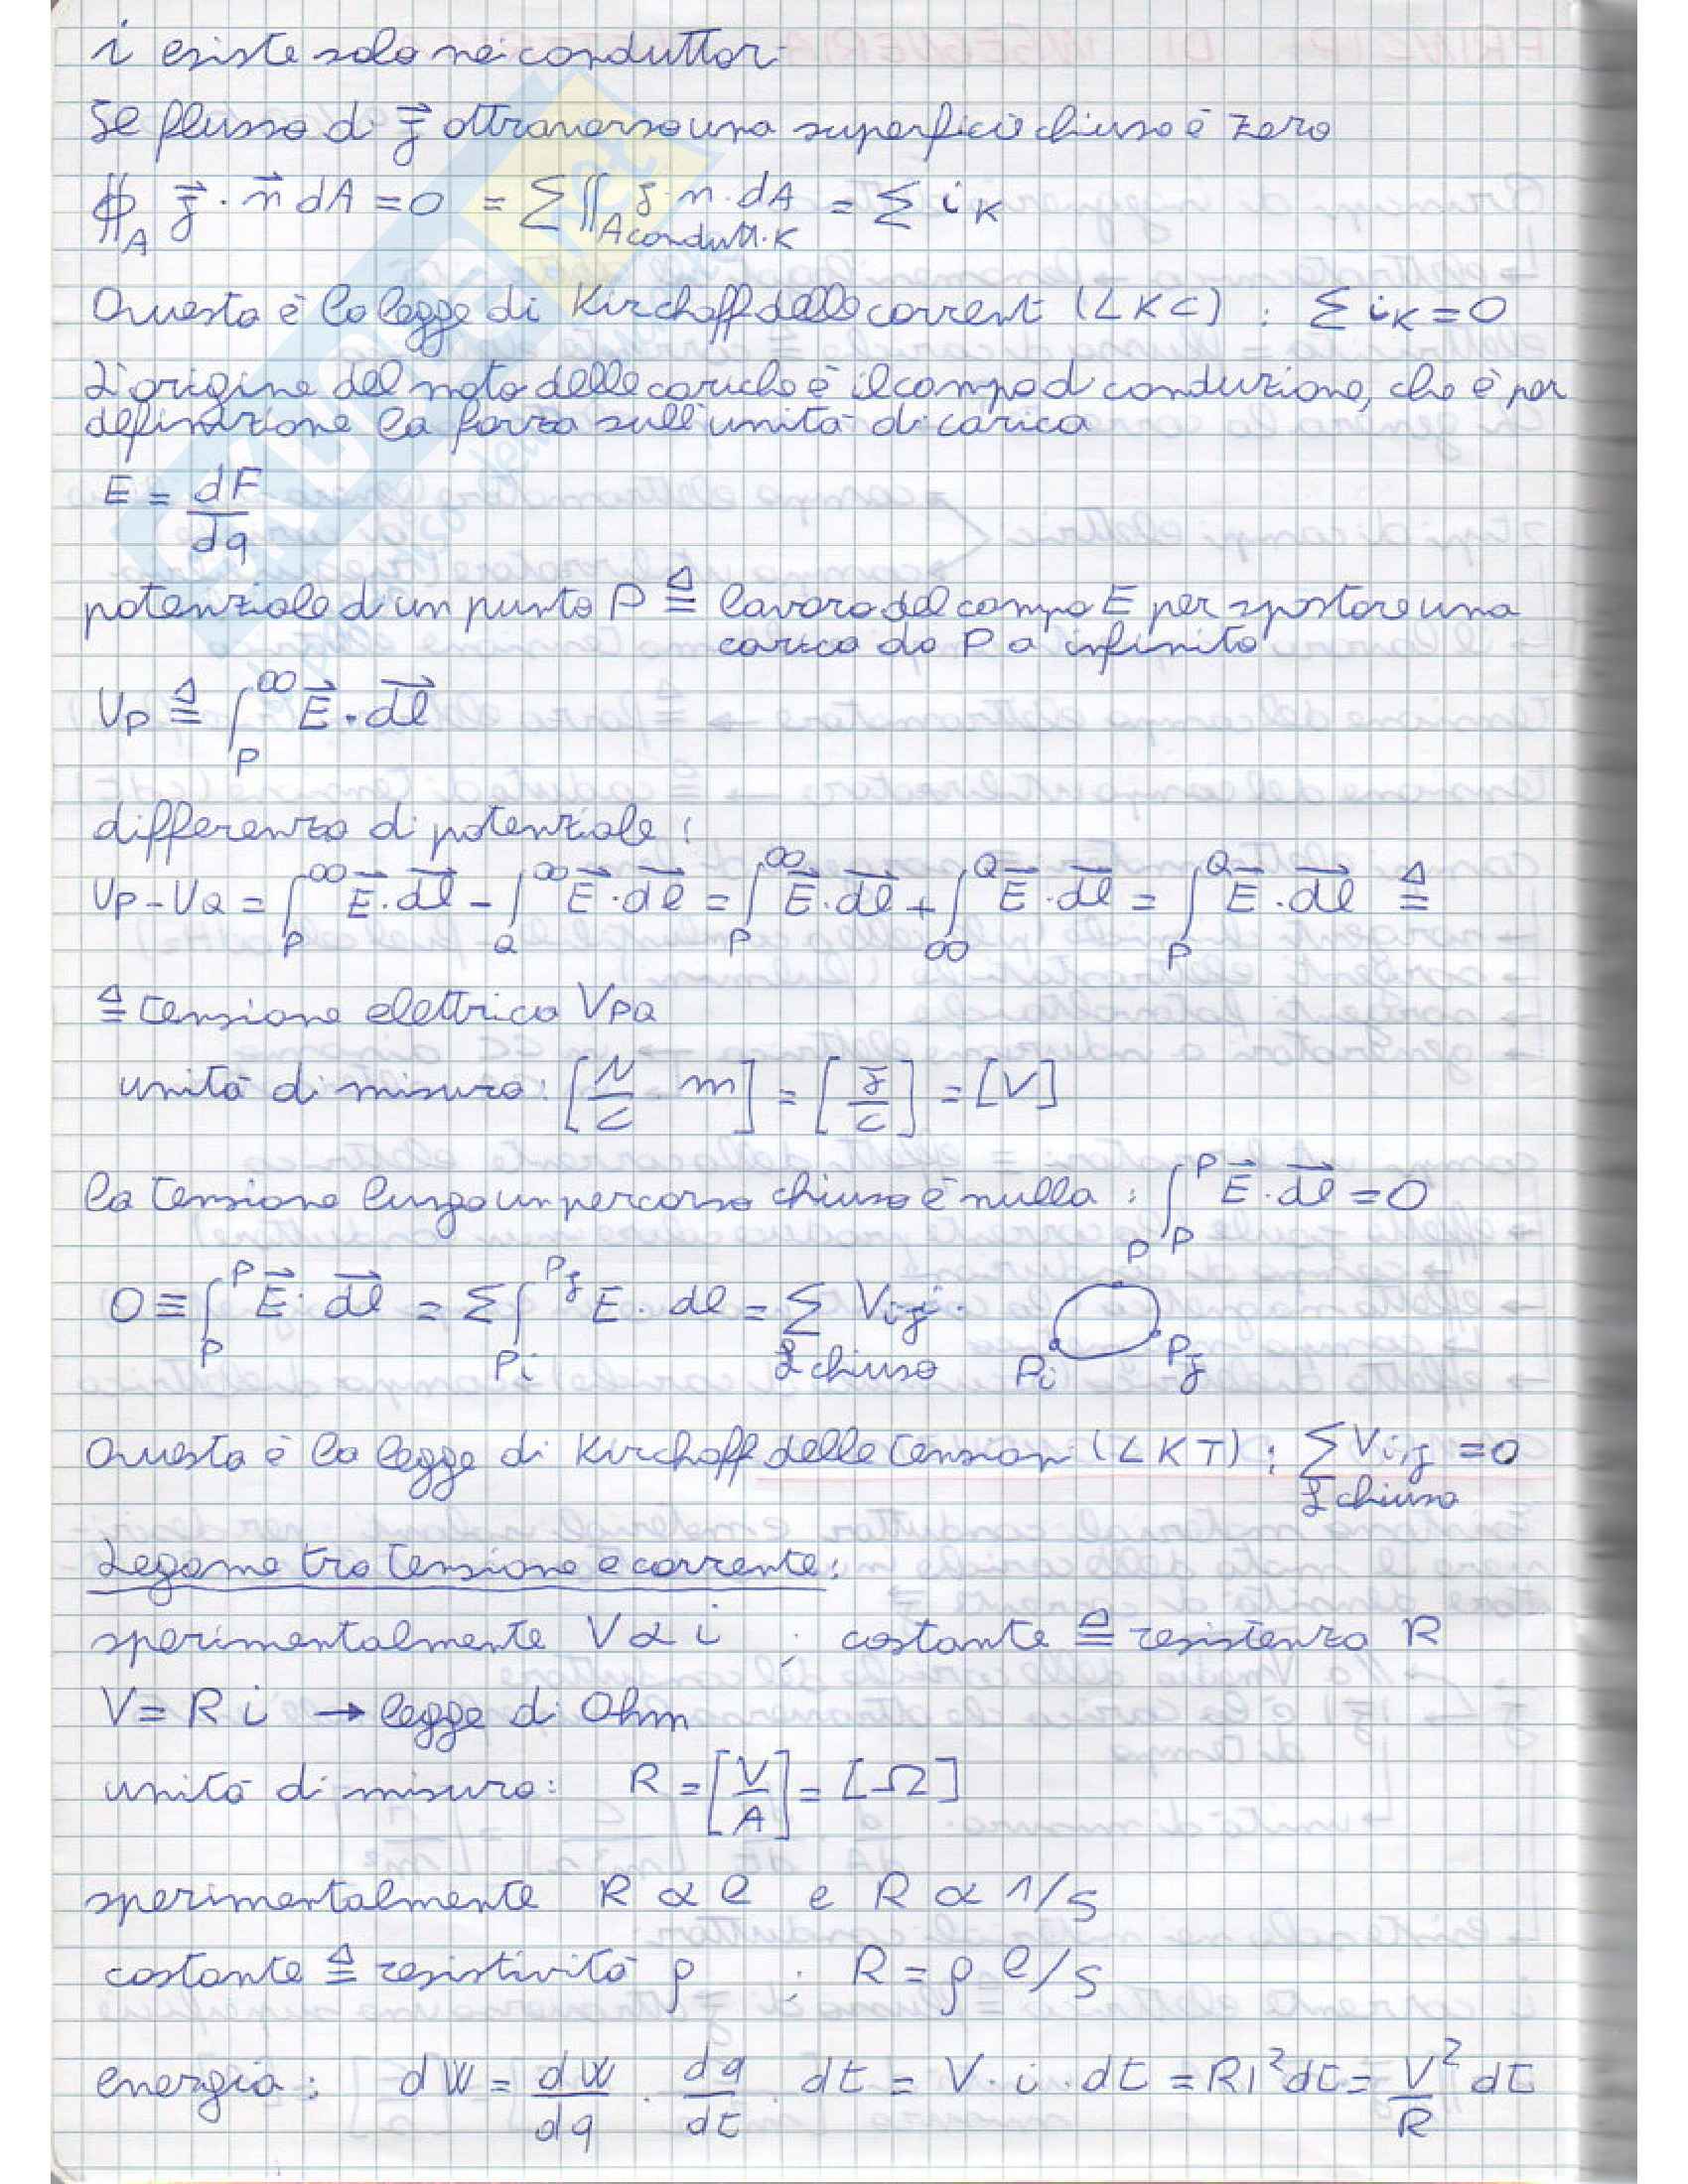 i esiste solo nei conduttori
Il flusso di J⃗ attraverso una superficie chiusa è zero
∯_A J⃗ · n⃗ dA = 0 = Σ ∬_{A condutt. K} J · n · dA = Σ i_K
Questa è la legge di Kirchoff delle correnti (LKC) : Σ i_K = 0
L'origine del moto delle cariche è il campo di conduzione, che è per
definizione la forza sull'unità di carica
E = dF/dq
potenziale di un punto P ≜ lavoro del campo E per spostare una
carica da P a infinito
V_P ≜ ∫_P^∞ E⃗ · dl⃗
differenza di potenziale :
V_P - V_Q = ∫_P^∞ E⃗ · dl⃗ - ∫_Q^∞ E⃗ · dl⃗ = ∫_P^∞ E⃗ · dl⃗ + ∫_∞^Q E⃗ · dl⃗ = ∫_P^Q E⃗ · dl⃗ ≜
≜ tensione elettrica V_PQ
unità di misura : [N/C m] = [J/C] = [V]
la tensione lungo un percorso chiuso è nulla : ∫_P^P E⃗ · dl⃗ = 0
P
0 ≡ ∫_P^P E⃗ · dl⃗ = Σ ∫_{Pi}^{Pj} E · dl = Σ_{ℒ chiuso} V_ij
Pi Pj
Questa è la legge di Kirchoff delle tensioni (LKT) : Σ_{ℒ chiuso} V_i,j = 0
Legame tra tensione e corrente :
sperimentalmente V ∝ i ; costante ≜ resistenza R
V = R i → legge di Ohm
unità di misura : R = [V/A] = [Ω]
sperimentalmente R ∝ l e R ∝ 1/S
costante ≜ resistività ρ ; R = ρ l/S
energia : dW = dW/dq · dq/dt · dt = V · i · dt = RI² dt = V²/R dt